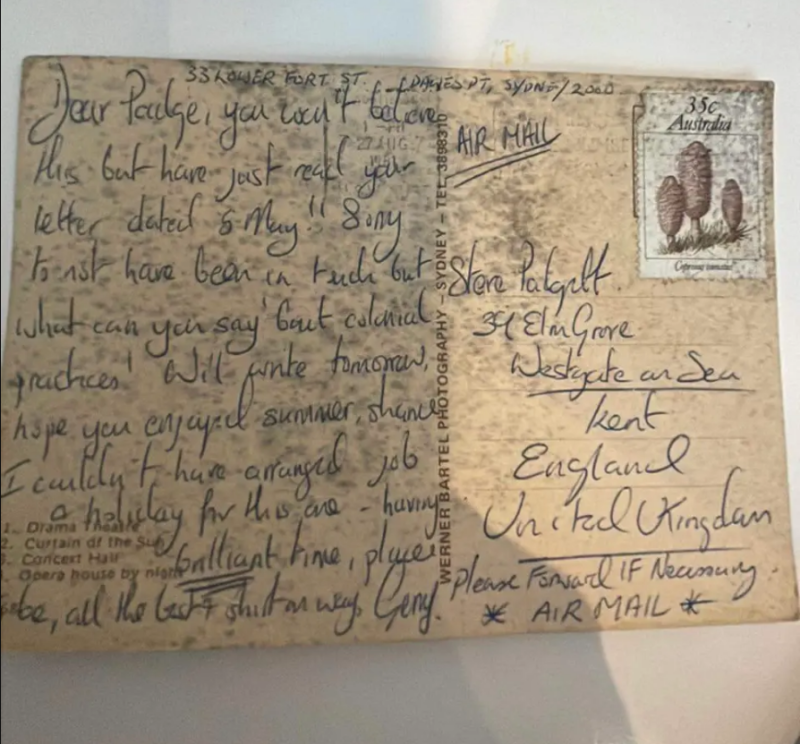 33 LOWER FORT ST. DAWES PT, SYDNEY 2000
Dear Padge, you won't believe
this but have just read your
letter dated 5 May!! Sorry
to not have been in touch but
what can you say 'bout colonial
practices! Will write tomorrow,
hope you enjoyed summer, shame
I couldn't have arranged job
& holiday for this one - having
brilliant time, place
to be, all the best & shirt on way, Gerry.
1. Drama Theatre
2. Curtain of the Sun
3. Concert Hall
Opera house by night
WERNER BARTEL PHOTOGRAPHY – SYDNEY – TEL. 3898310
27 AUG
35c
Australia
Coprinus comatus
AIR MAIL
Steve Padgett.
39 Elm Grove
Westgate on Sea
Kent
England
United Kingdom
Please Forward IF Necessary.
* AIR MAIL *